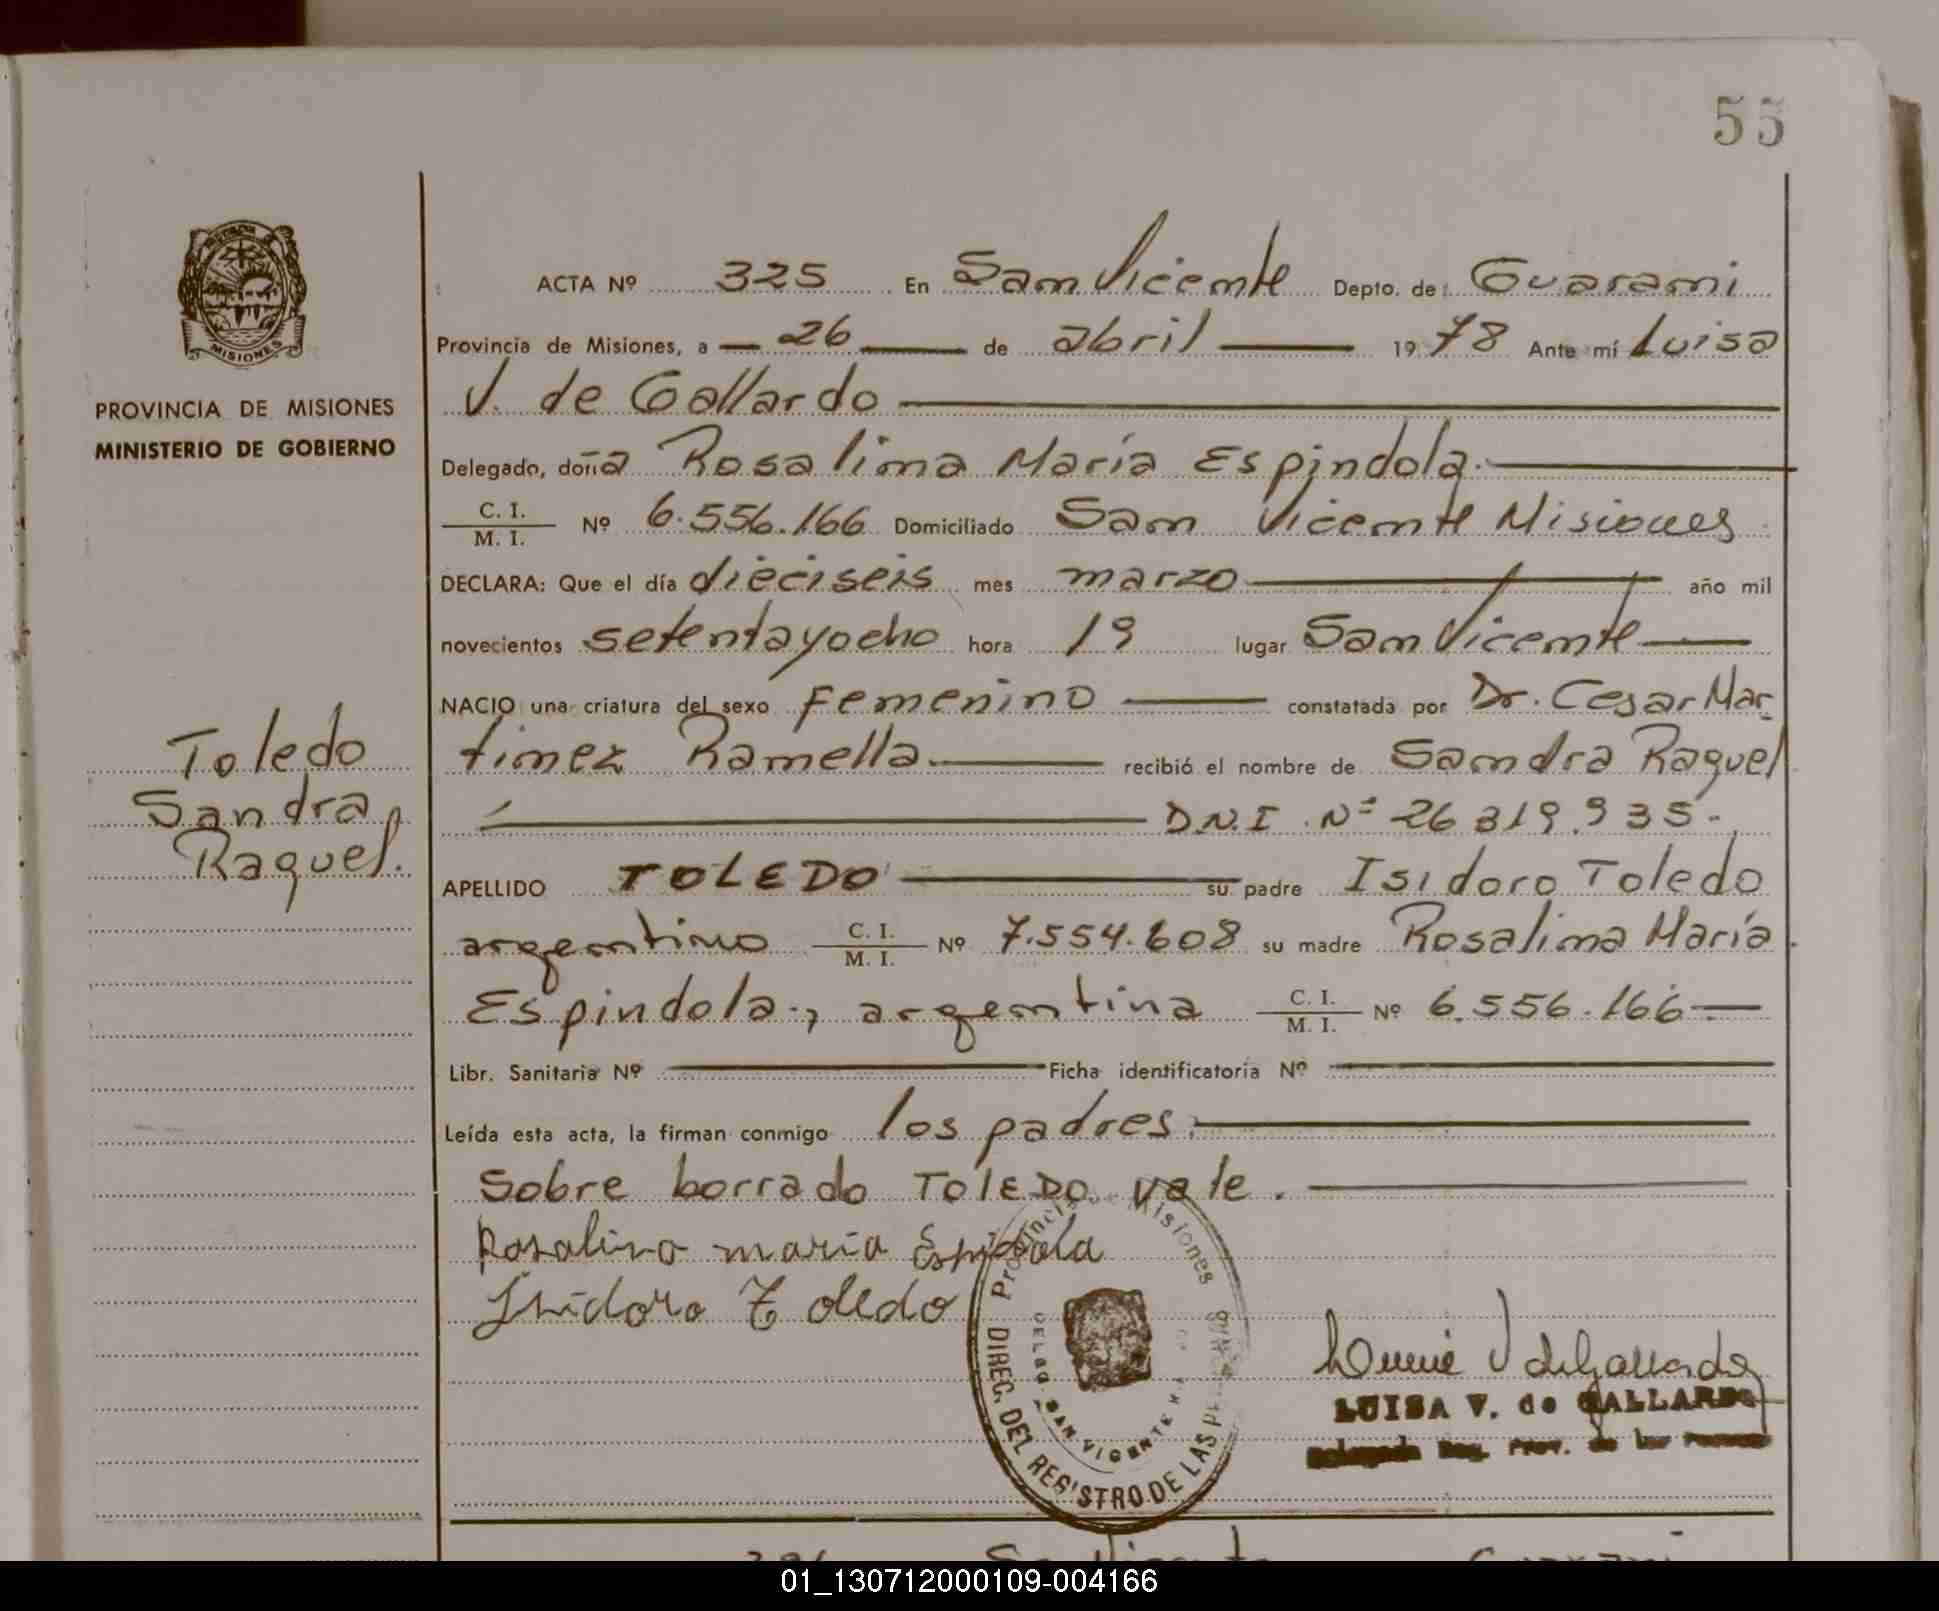 55
MISIONES
PROVINCIA DE MISIONES
MINISTERIO DE GOBIERNO
Toledo
Sandra
Raquel.
ACTA Nº 325 En San Vicente Depto. de Guarani
Provincia de Misiones, a 26 de abril 1978 Ante mí Luisa
V. de Gallardo
Delegado, doña Rosalima María Espindola.
C. I.
M. I. Nº 6.556.166 Domiciliado San Vicente Misiones
DECLARA: Que el día dieciseis mes marzo año mil
novecientos setentayocho hora 19 lugar San Vicente
NACIO una criatura del sexo femenino constatada por Dr. Cesar Mar
tinez Ramella recibió el nombre de Sandra Raquel
D.N.I Nº 26 319.935.
APELLIDO TOLEDO su padre Isidoro Toledo
argentino C. I. M. I. Nº 7.554.608 su madre Rosalima María
Espindola., argentina C. I. M. I. Nº 6.556.166
Libr. Sanitaria Nº Ficha identificatoria Nº
Leída esta acta, la firman conmigo los padres.
Sobre borrado TOLEDO vale.
Rosalina maria Espidola
Isidoro Toledo
Provincia de Misiones
DIREC. DEL REGISTRO DE LAS PERSONAS
DELEG. SAN VICENTE
V de Gallardo
LUISA V. de GALLARDO
Delegada Reg. Prov. de las Personas
326 San Vicente Guarani
01_130712000109-004166